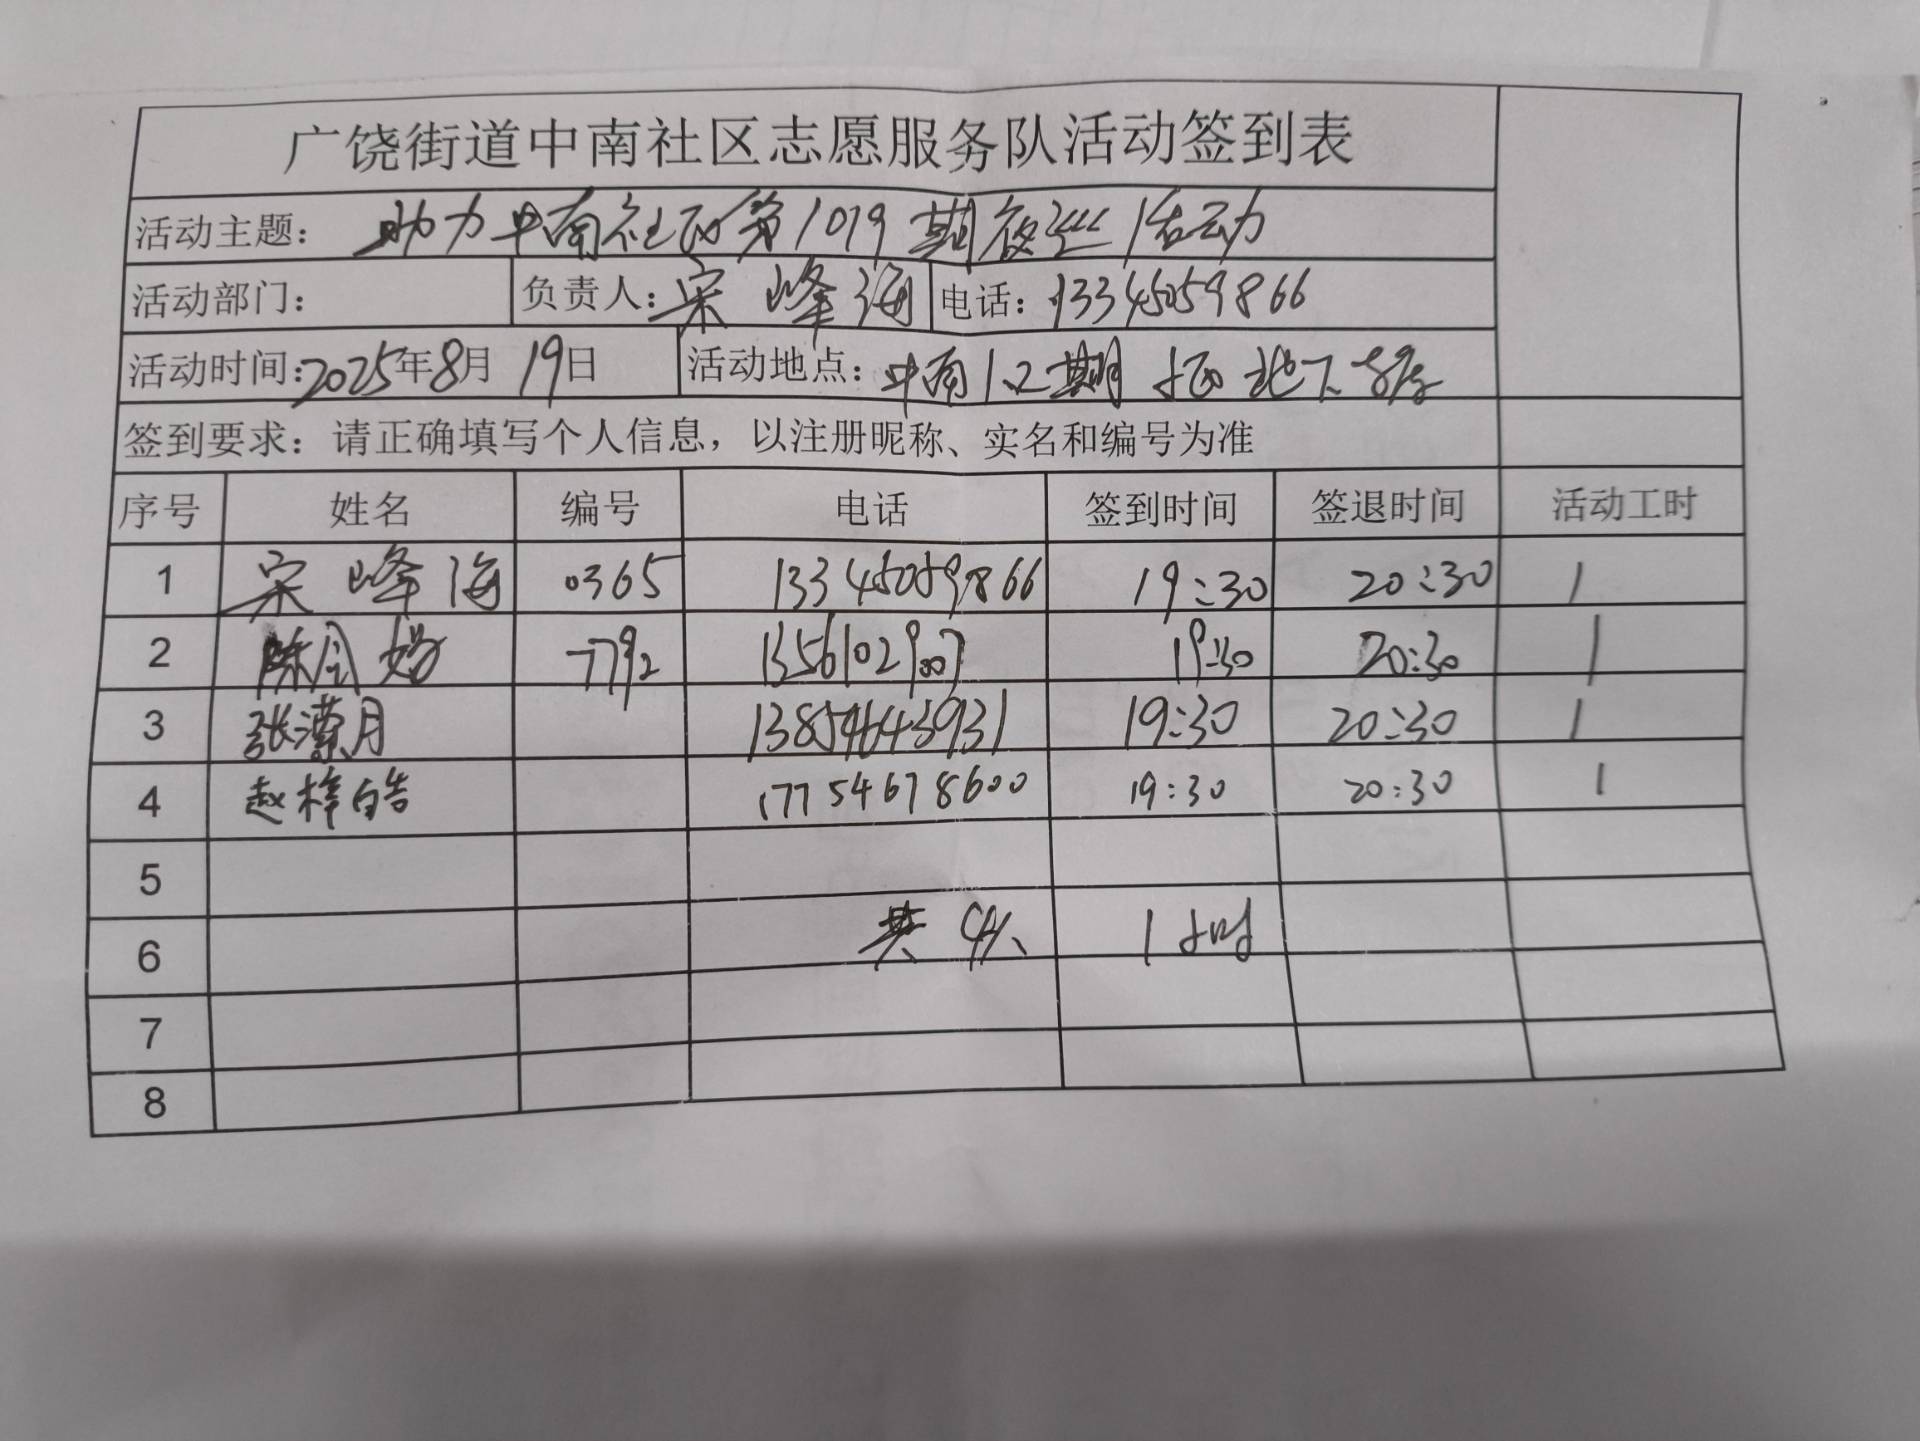 广饶街道中南社区志愿服务队活动签到表
活动主题: 助力中南社区第1019期夜巡活动
活动部门: 负责人: 宋峰海 电话: 13345059866
活动时间: 2025年8月19日 活动地点: 中南1.2期 小区地下车库
签到要求: 请正确填写个人信息，以注册昵称、实名和编号为准
序号 姓名 编号 电话 签到时间 签退时间 活动工时
1 宋峰海 0365 13345059866 19:30 20:30 1
2 7792 19:30 20:30 1
3 张潆月 13854643931 19:30 20:30 1
4 赵梓皓 17754678600 19:30 20:30 1
5
6 共4人 1小时
7
8